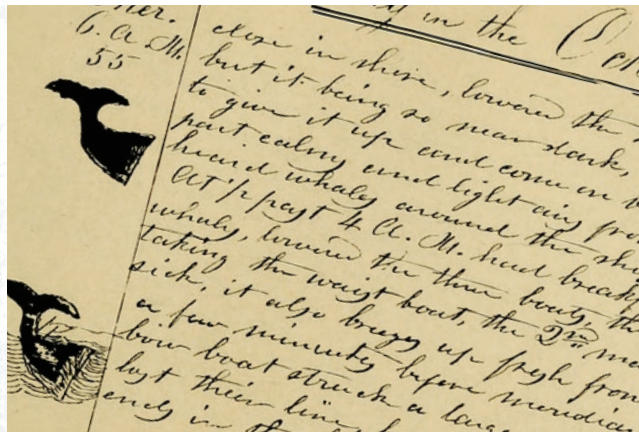 6 A.M.
55
in the
close in shore, lowered the
but it being so near dark,
to give it up and come on
part calms and light airs from
heard whales around the ship
At ½ past 4 A.M. had breakfast
whales, lowered the three boats, the
taking the waist boat, the 2nd
sick, it also breezes up fresh from
a few minutes before meridian
bow boat struck a large
lost their line,
ends in the